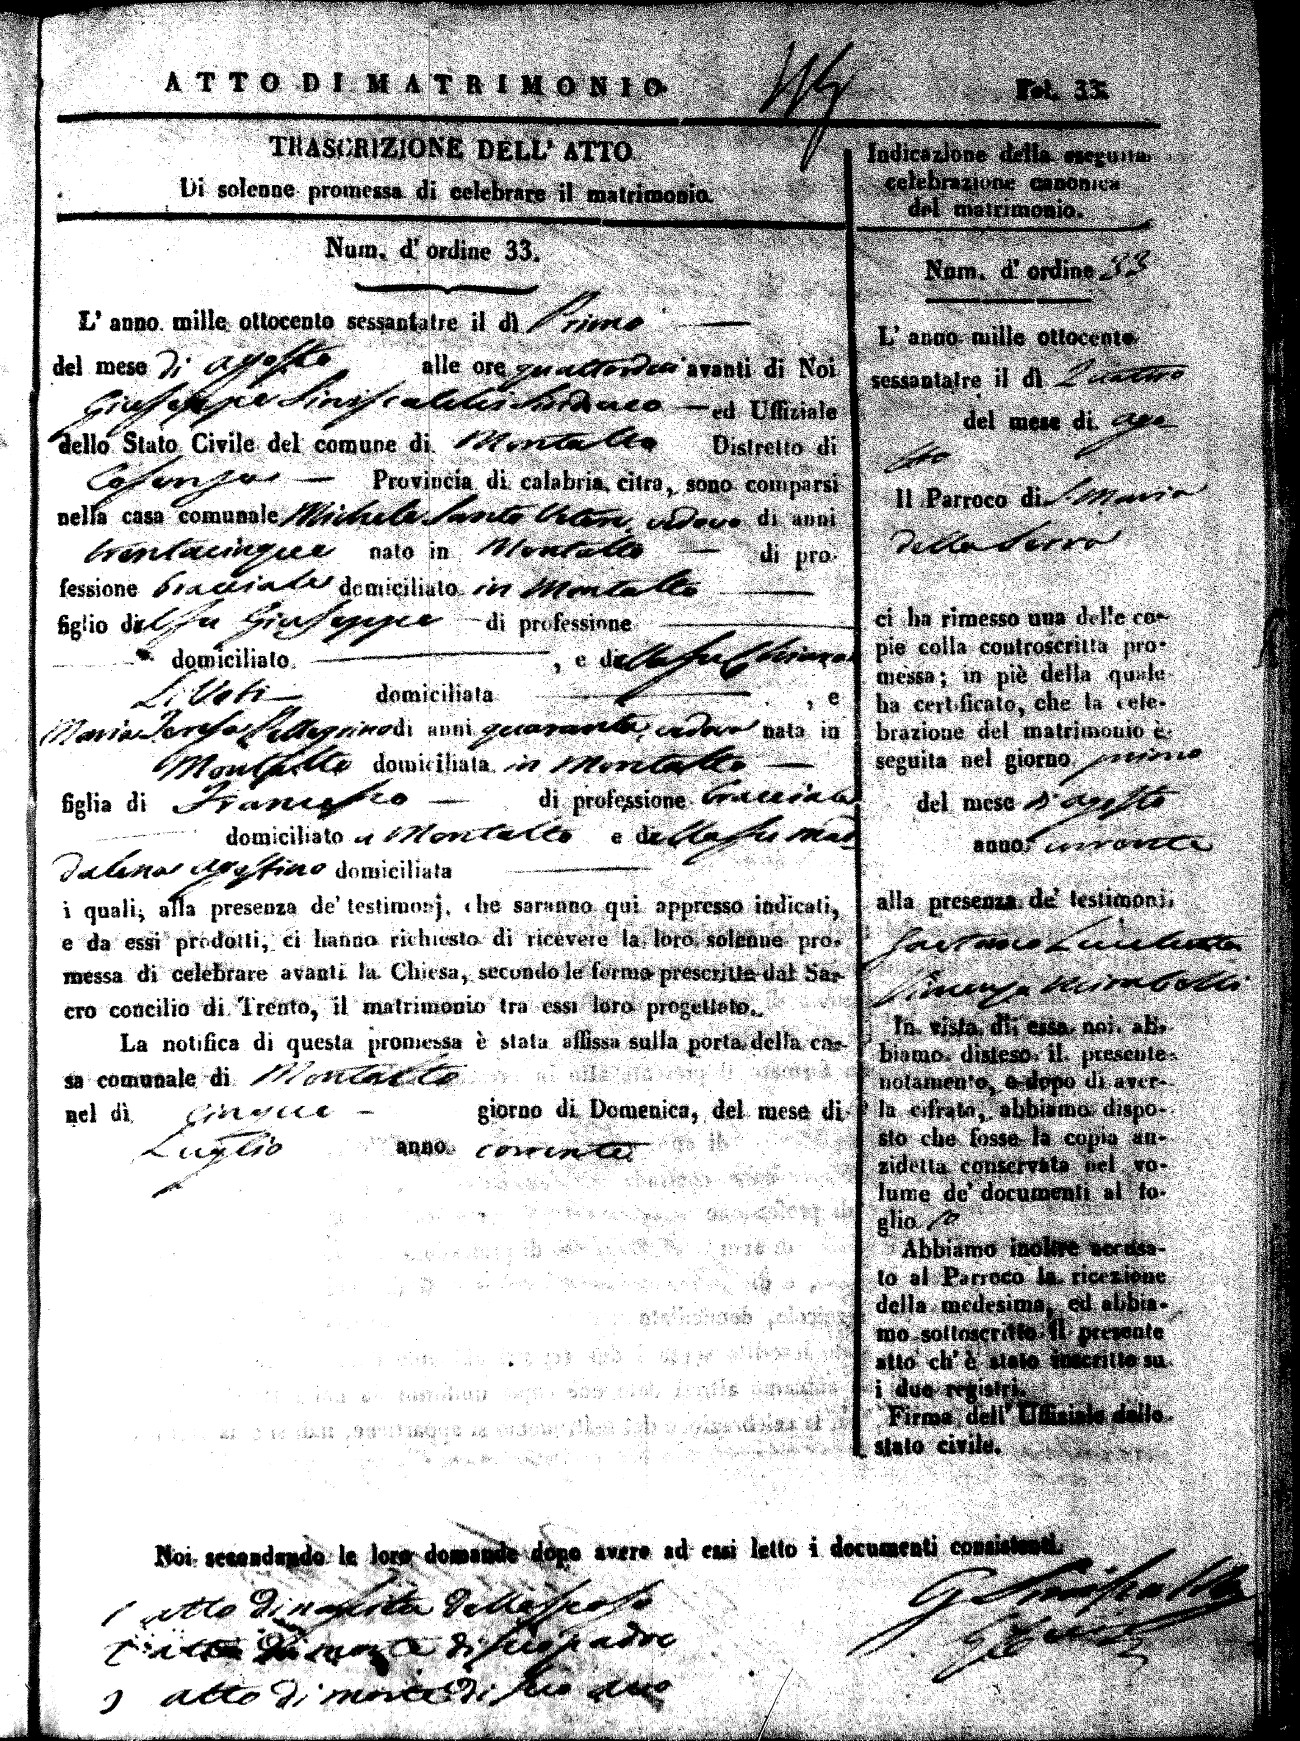 ATTO DI MATRIMONIO
Fol. 33
TRASCRIZIONE DELL' ATTO
Di solenne promessa di celebrare il matrimonio.
Num. d' ordine 33.
L' anno mille ottocento sessantatre il dì Primo
del mese di agosto alle ore quattordici avanti di Noi
Giuseppe Siniscalchi Sindaco ed Uffiziale
dello Stato Civile del comune di Montalto Distretto di
Cosenza Provincia di calabria citra, sono comparsi
nella casa comunale Michele Santo vedovo di anni
trentacinque nato in Montalto di pro-
fessione bracciale domiciliato in Montalto
figlio del fu Giuseppe di professione
domiciliato , e della fu
domiciliata , e
Maria Teresa Pellegrino di anni quaranta, vedova nata in
Montalto domiciliata in Montalto
figlia di Francesco di professione bracciale
domiciliato a Montalto e della fu Mad
dalena Agostino domiciliata
i quali, alla presenza de' testimonj, che saranno qui appresso indicati,
e da essi prodotti, ci hanno richiesto di ricevere la loro solenne pro-
messa di celebrare avanti la Chiesa, secondo le forme prescritte dal Sa-
cro concilio di Trento, il matrimonio tra essi loro progettato.
La notifica di questa promessa è stata affissa sulla porta della ca-
sa comunale di Montalto
nel dì cinque giorno di Domenica, del mese di
Luglio anno corrente
Indicazione della eseguita
celebrazione canonica
del matrimonio.
Num. d' ordine 33
L' anno mille ottocento
sessantatre il dì Quattro
del mese di ago
sto
Il Parroco di S. Maria
della Serra
ci ha rimesso una delle co-
pie colla controscritta pro-
messa; in piè della quale
ha certificato, che la cele-
brazione del matrimonio è
seguita nel giorno primo
del mese d'agosto
anno corrente
alla presenza de' testimonj
Gaetano
Vincenzo Mirabelli
In vista di essa noi ab-
biamo disteso il presente
notamento, e dopo di aver-
la cifrata, abbiamo dispo-
sto che fosse la copia an-
zidetta conservata nel vo-
lume de' documenti al fo-
glio 10
Abbiamo inoltre accusa-
to al Parroco la ricezione
della medesima, ed abbia-
mo sottoscritto il presente
atto ch' è stato inscritto su
i due registri.
Firma dell' Uffiziale dello
stato civile.
Noi secondando le loro domande dopo avere ad essi letto i documenti consistenti.
1 atto di nascita dello sposo
2 atto di morte di suo padre
3 atto di morte di suo avo
G Siniscalchi